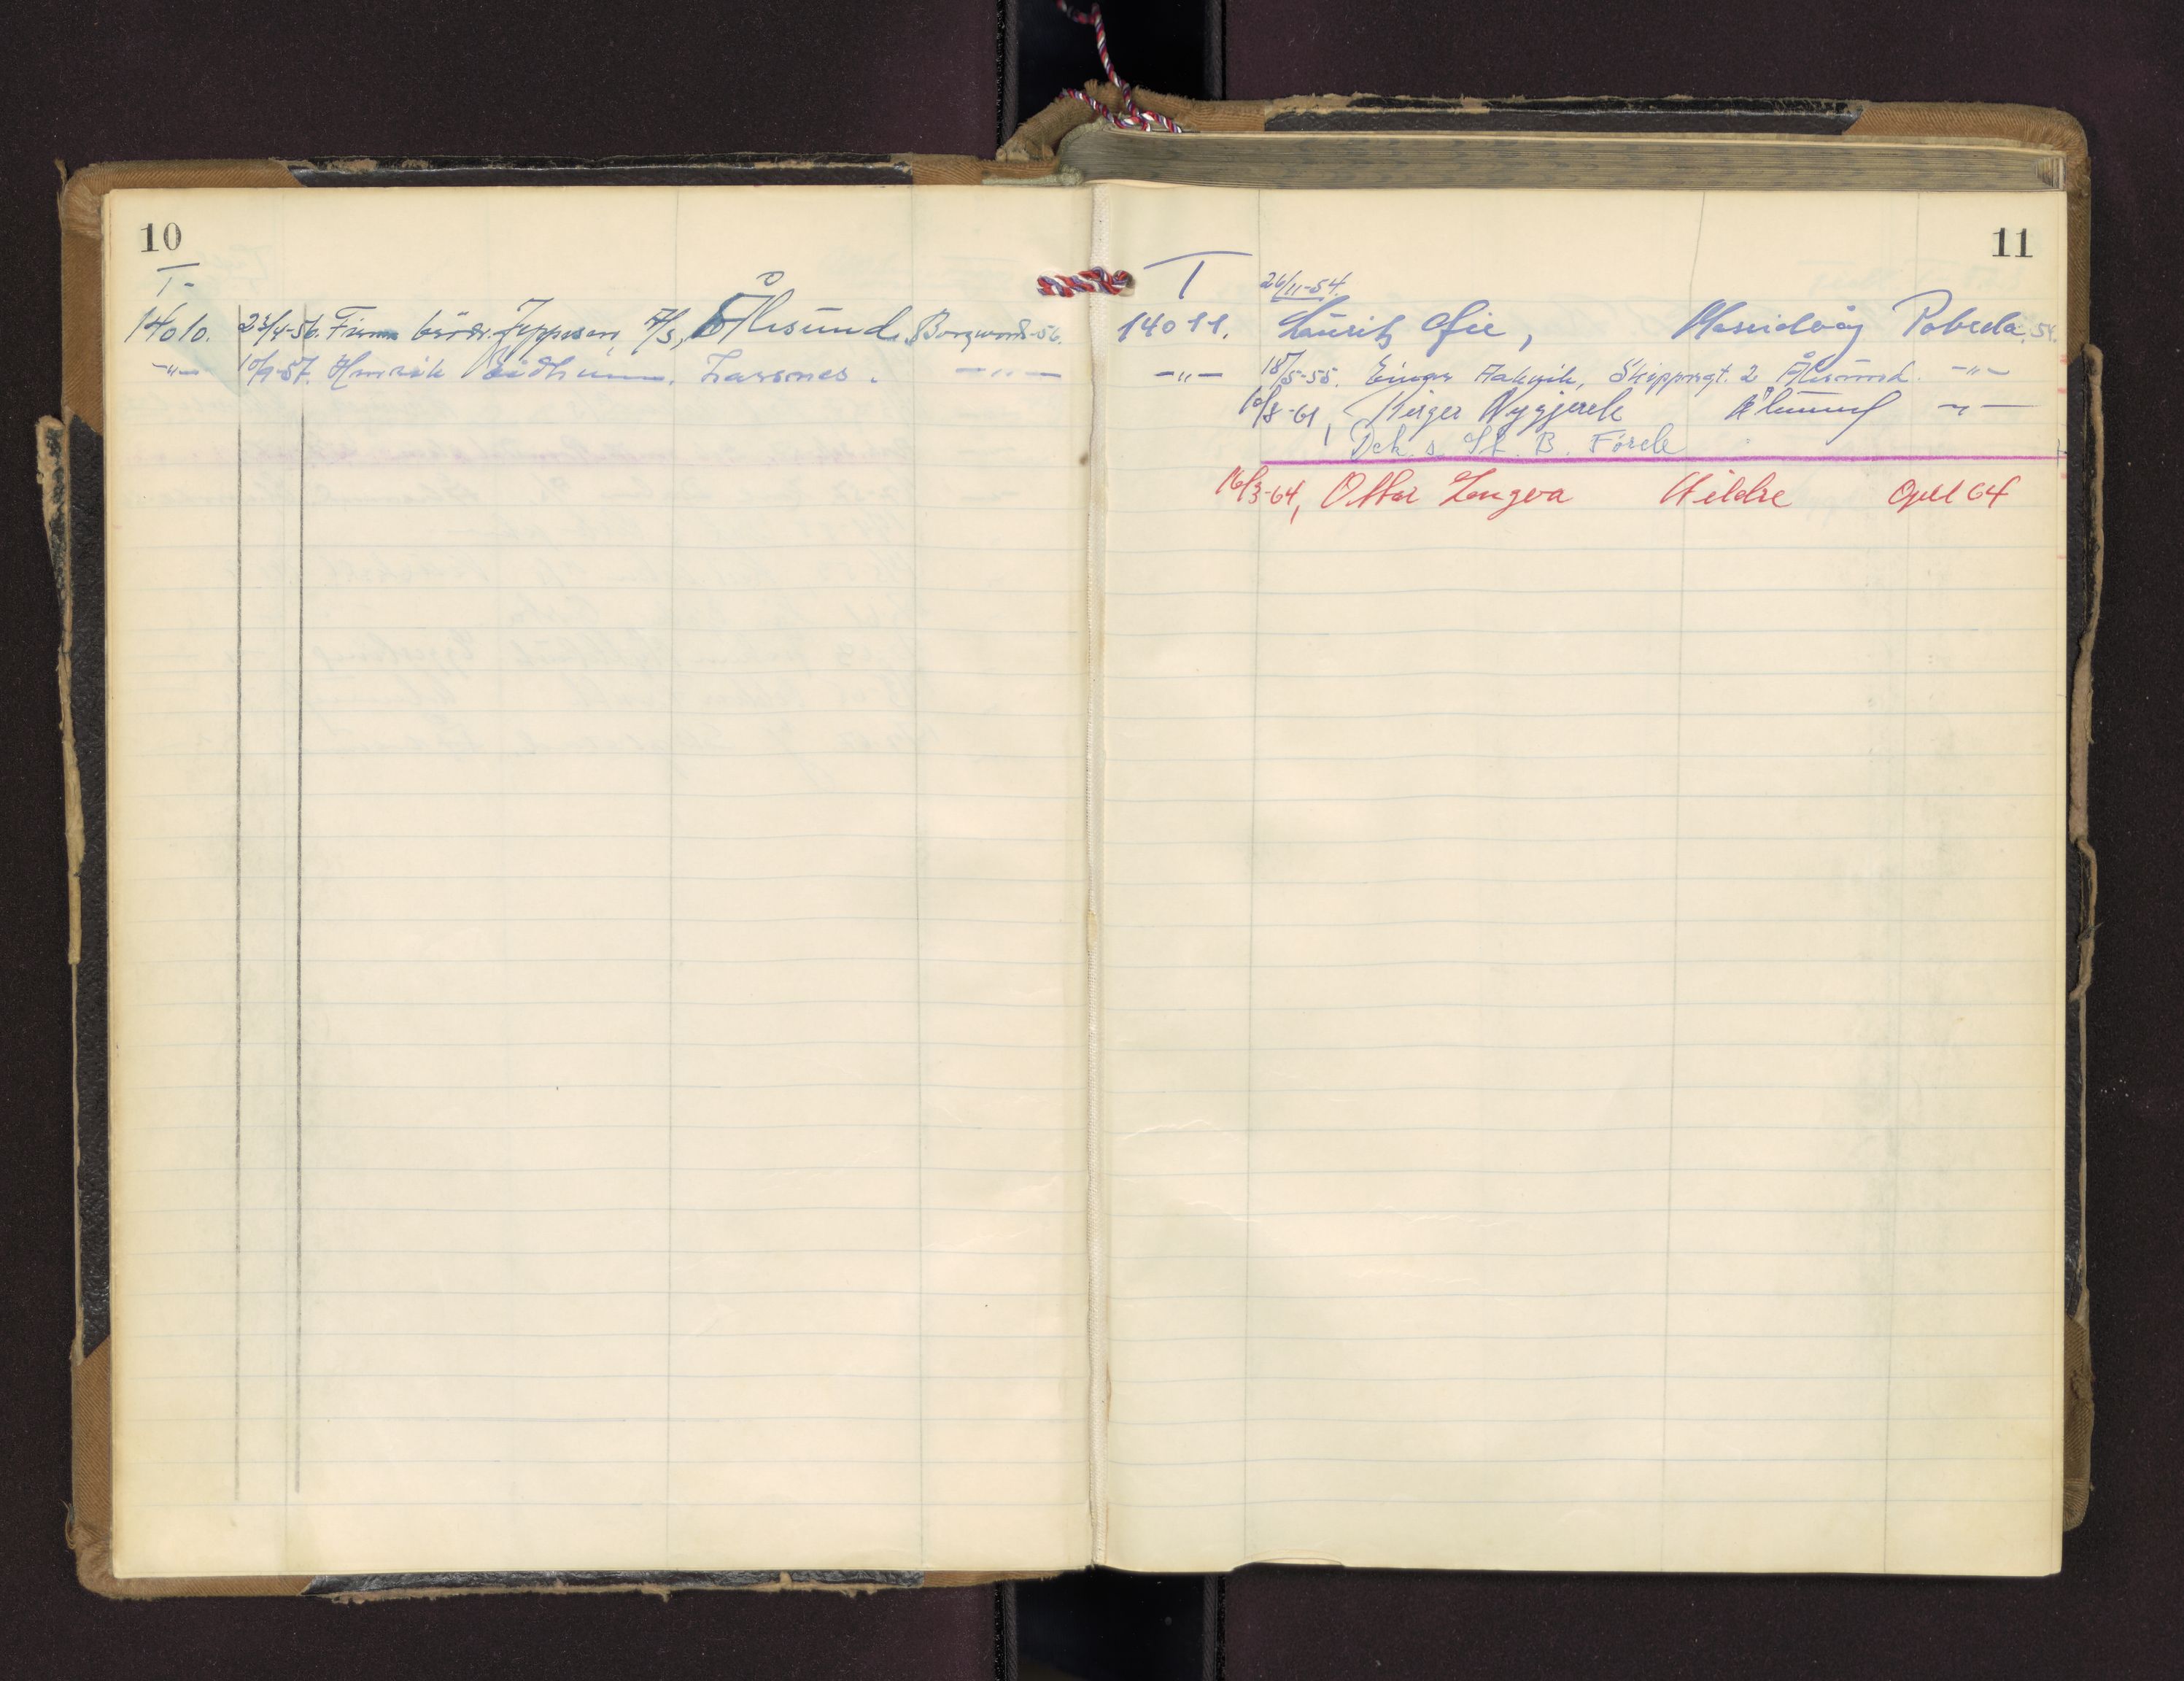 10
T-
14010. 23/4-56. Firma brödr. Jeppesen, A/S, Ålesund. Borgward-56.
-"- 10/9-57. Henrik Eidheim. Larsnes. -"-
11
T 26/11-54.
14011. Lauritz Gie, Mauseidvåg Pobeda. 54.
-"- 18/5-55. Einar Aakvik, Skippergt. 2 Ålesund. -"-
10/8-61, Birger Nygjerde Ålesund -"-
Dek. s. St. B. Förde
16/3-64, Ottar Longva Hildre Opel 64